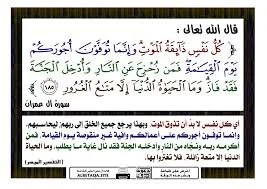 قال الله تعالى :
﴿ كُلُّ نَفْسٍ ذَائِقَةُ الْمَوْتِ وَإِنَّمَا تُوَفَّوْنَ أُجُورَكُمْ
يَوْمَ الْقِيَامَةِ فَمَن زُحْزِحَ عَنِ النَّارِ وَأُدْخِلَ الْجَنَّةَ
فَقَدْ فَازَ وَمَا الْحَيَاةُ الدُّنْيَا إِلَّا مَتَاعُ الْغُرُورِ ١٨٥ ﴾
سورة آل عمران
أي كل نفس لا بد أن تذوق الموت، وبهذا يرجع جميع الخلق إلى ربهم، ليحاسبهم.
وإنما توفون أجوركم على أعمالكم وافية غير منقوصة يوم القيامة، فمن
أكرمه ربه ونجاه من النار وأدخله الجنة فقد نال غاية ما يطلب. وما الحياة
الدنيا إلا متعة زائلة، فلا تغتروا بها.
[ التفسير الميسر ]
ALBETAQA.SITE